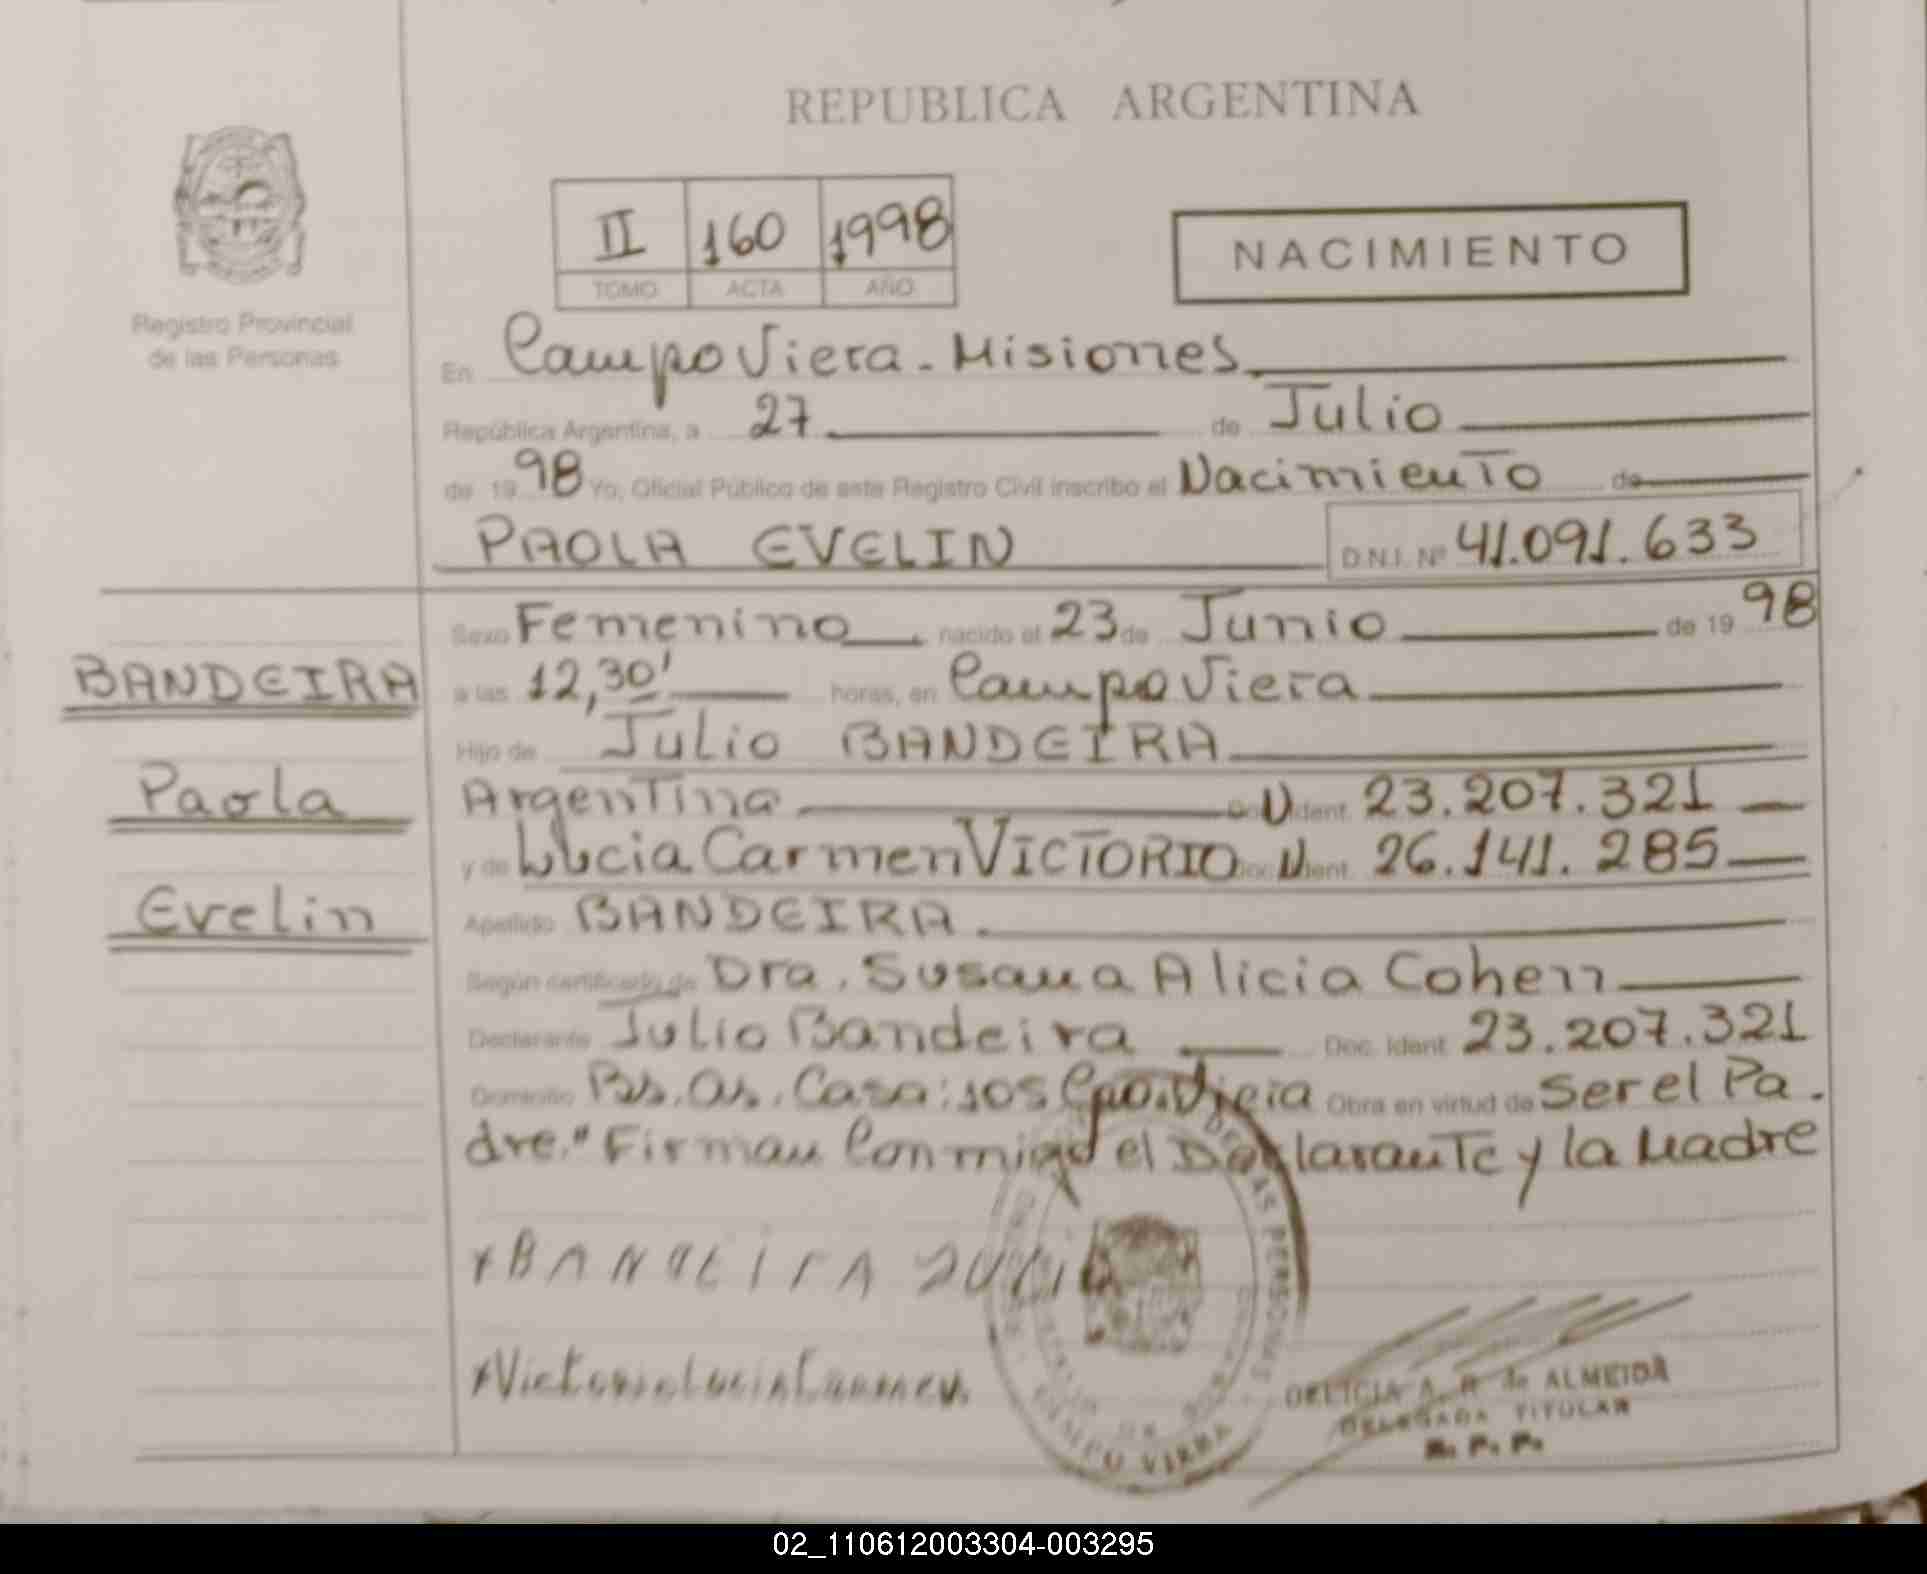 REPUBLICA ARGENTINA
II 160 1998
TOMO ACTA AÑO
NACIMIENTO
Registro Provincial
de las Personas
En Campo Viera - Misiones
República Argentina, a 27 de Julio
de 19 98 Yo, Oficial Público de este Registro Civil inscribo el Nacimiento de
PAOLA EVELIN D.N.I. Nº 41.091.633
BANDEIRA
Paola
Evelin
Sexo Femenino nacido el 23 de Junio de 19 98
a las 12,30' horas, en Campo Viera
Hijo de Julio BANDEIRA
Argentina Ident. 23.207.321
y de Lucia Carmen VICTORIO Doc. Ident. 26.141.285
Apellido BANDEIRA.
Según certificado de Dra. Susana Alicia Cohen
Declarante Julio Bandeira Doc. Ident. 23.207.321
Domicilio Bs. As. Casa: 105 Cpo. Viera Obra en virtud de Ser el Pa-
dre." Firman Conmigo el Declarante y la Madre
BANDEIRA JULIO
Victorio Lucia Carmen
DE LAS PERSONAS
CAMPO VIERA
DELICIA A. R. de ALMEIDA
DELEGADA TITULAR
R. P. P.
02_110612003304-003295